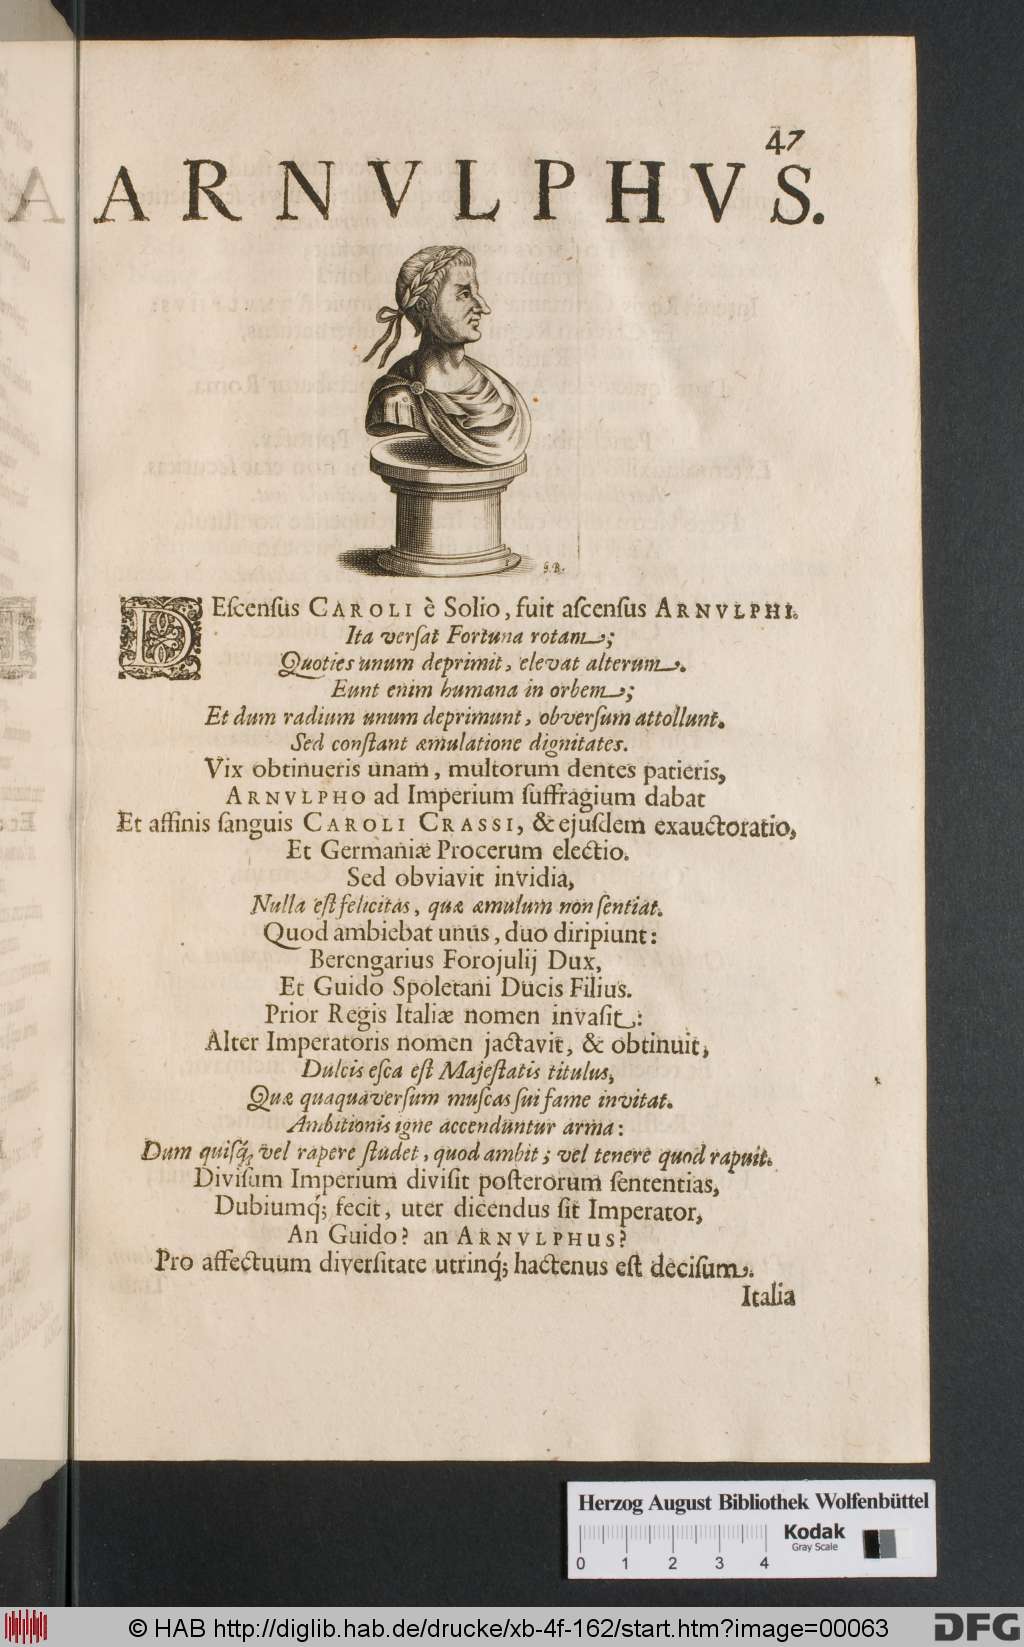 47
ARNVLPHVS.
G.B.
DEſcenſus CAROLI è Solio, fuit aſcenſus ARNVLPHI.
Ita verſat Fortuna rotam;
Quoties unum deprimit, elevat alterum.
Eunt enim humana in orbem;
Et dum radium unum deprimunt, obverſum attollunt.
Sed conſtant æmulatione dignitates.
Vix obtinueris unam, multorum dentes patieris,
ARNVLPHO ad Imperium ſuffragium dabat
Et affinis ſanguis CAROLI CRASSI, & ejuſdem exauctoratio,
Et Germaniæ Procerum electio.
Sed obviavit invidia,
Nulla eſt felicitas, quæ æmulum non ſentiat.
Quod ambiebat unus, duo diripiunt:
Berengarius Forojulij Dux,
Et Guido Spoletani Ducis Filius.
Prior Regis Italiæ nomen invaſit:
Alter Imperatoris nomen jactavit, & obtinuit,
Dulcis eſca eſt Majeſtatis titulus,
Quæ quaquaverſum muſcas ſui fame invitat.
Ambitionis igne accenduntur arma:
Dum quiſq́; vel rapere ſtudet, quod ambit; vel tenere quod rapuit.
Diviſum Imperium diviſit poſterorum ſententias,
Dubiumq́; fecit, uter dicendus ſit Imperator,
An Guido? an ARNVLPHus?
Pro affectuum diverſitate utrinq́; hactenus eſt deciſum.
Italia
Herzog August Bibliothek Wolfenbüttel
0 1 2 3 4
Kodak
Gray Scale
© HAB http://diglib.hab.de/drucke/xb-4f-162/start.htm?image=00063
DFG